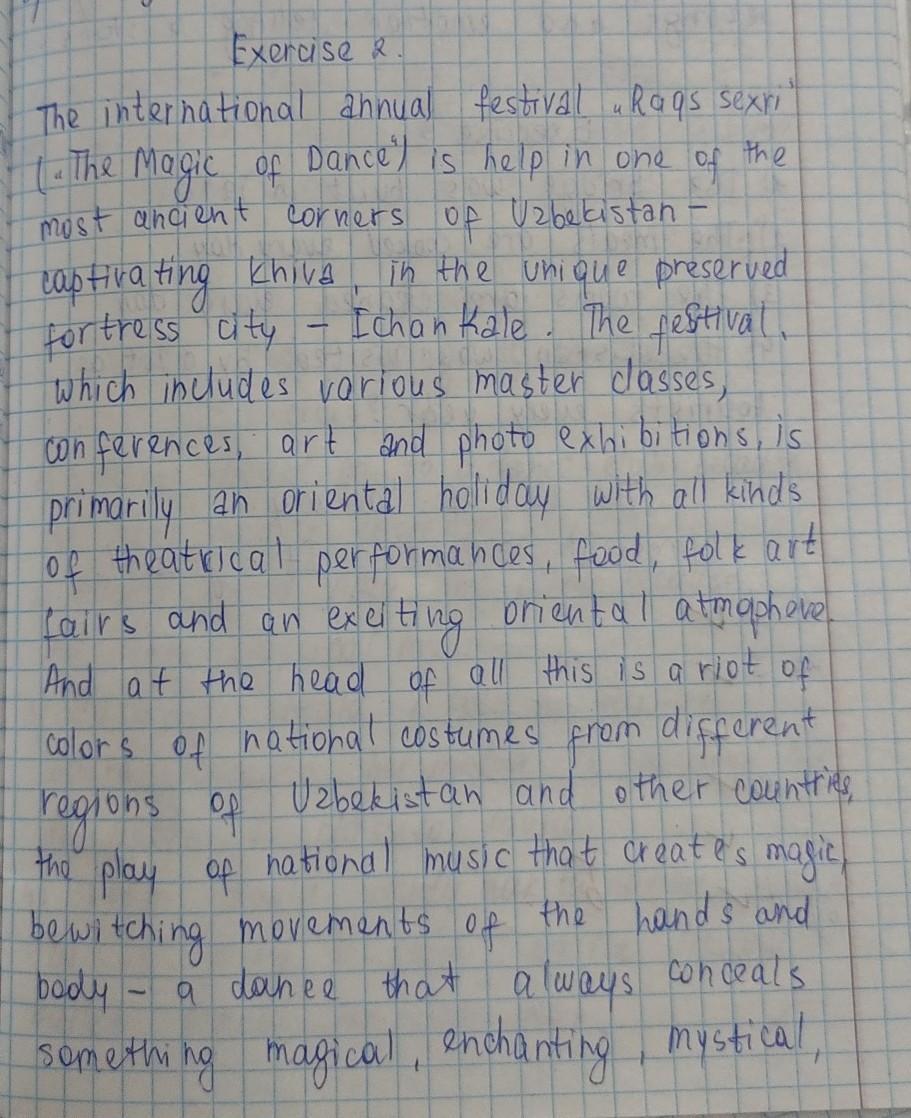 Exercise 2.
The international annual festival „Raqs sexri"
(„The Magic of Dance") is help in one of the
most ancient corners of Uzbekistan –
captivating Khiva, in the unique preserved
fortress city – Ichan Kale. The festival,
which includes various master classes,
conferences, art and photo exhibitions, is
primarily an oriental holiday with all kinds
of theatrical performances, food, folk art
fairs and an exciting oriental atmosphere.
And at the head of all this is a riot of
colors of national costumes from different
regions of Uzbekistan and other countries,
the play of national music that creates magic,
bewitching movements of the hands and
body – a dance that always conceals
something magical, enchanting, mystical,